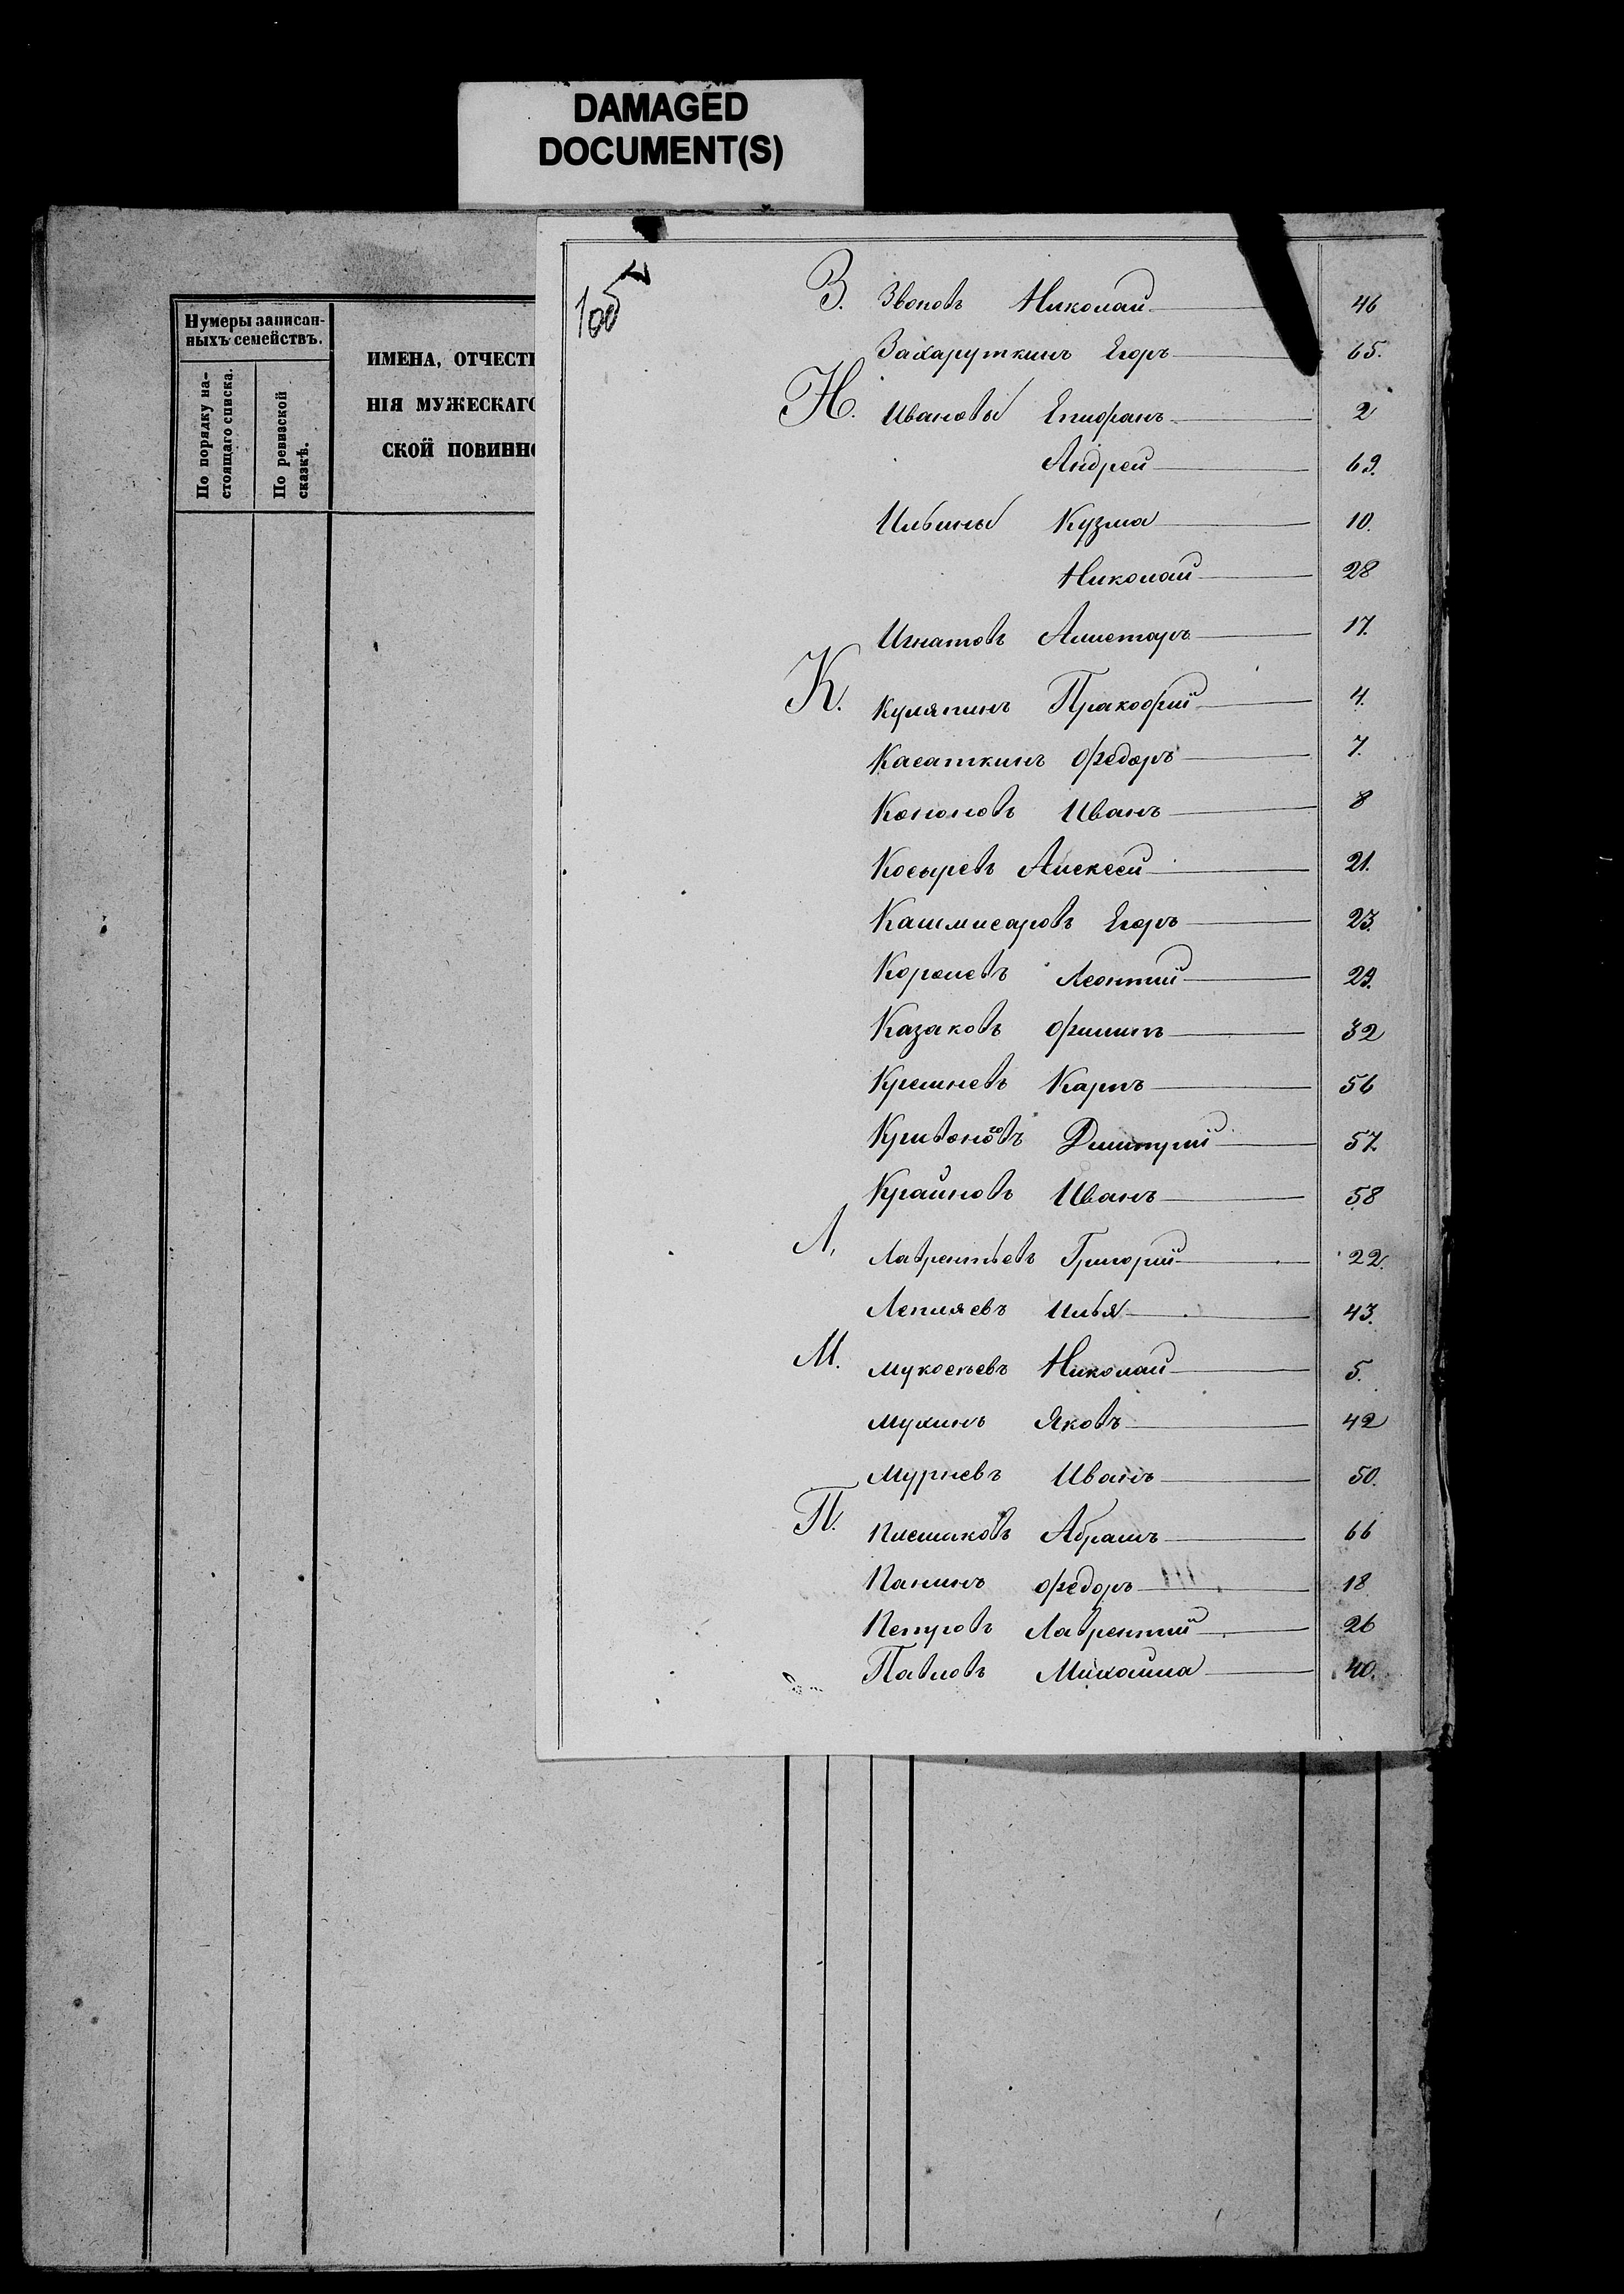 DAMAGED
DOCUMENT(S)
Нумеры записан-
ныхъ семействъ.
По порядку на-
стоящаго списка.
По ревизской
сказкѣ.
ИМЕНА, ОТЧЕСТВ
НІЯ МУЖЕСКАГО
СКОЙ ПОВИННО
З. Звоновъ Николай 46
Захаруткинъ Егоръ 65.
И. Ивановы Епифанъ 2
Андрей 69.
Ильины Кузма 10.
Николай 28
Игнатовъ 17.
К. Куляпинъ Пракофій 4.
Касаткинъ Ѳедоръ 7.
Кононовъ Иванъ 8
Косыревъ Алексей 21.
Кашмисаровъ Егоръ 23.
Королевъ Леонтий 29.
Казаковъ Филипъ 32
Кремневъ Карпъ 56
Дмитрій 57.
Крайновъ Иванъ 58
Л. Лаврентьевъ Григорій 22.
Лепляевъ Илья 43.
М. Мукосѣевъ Николай 5.
Мухинъ Яковъ 42
Мурневъ Иванъ 50.
П. Плешаковъ Абрамъ 66
Панинъ Ѳедоръ 18
Петровъ Лаврентій 26
Павловъ Михаила 40.